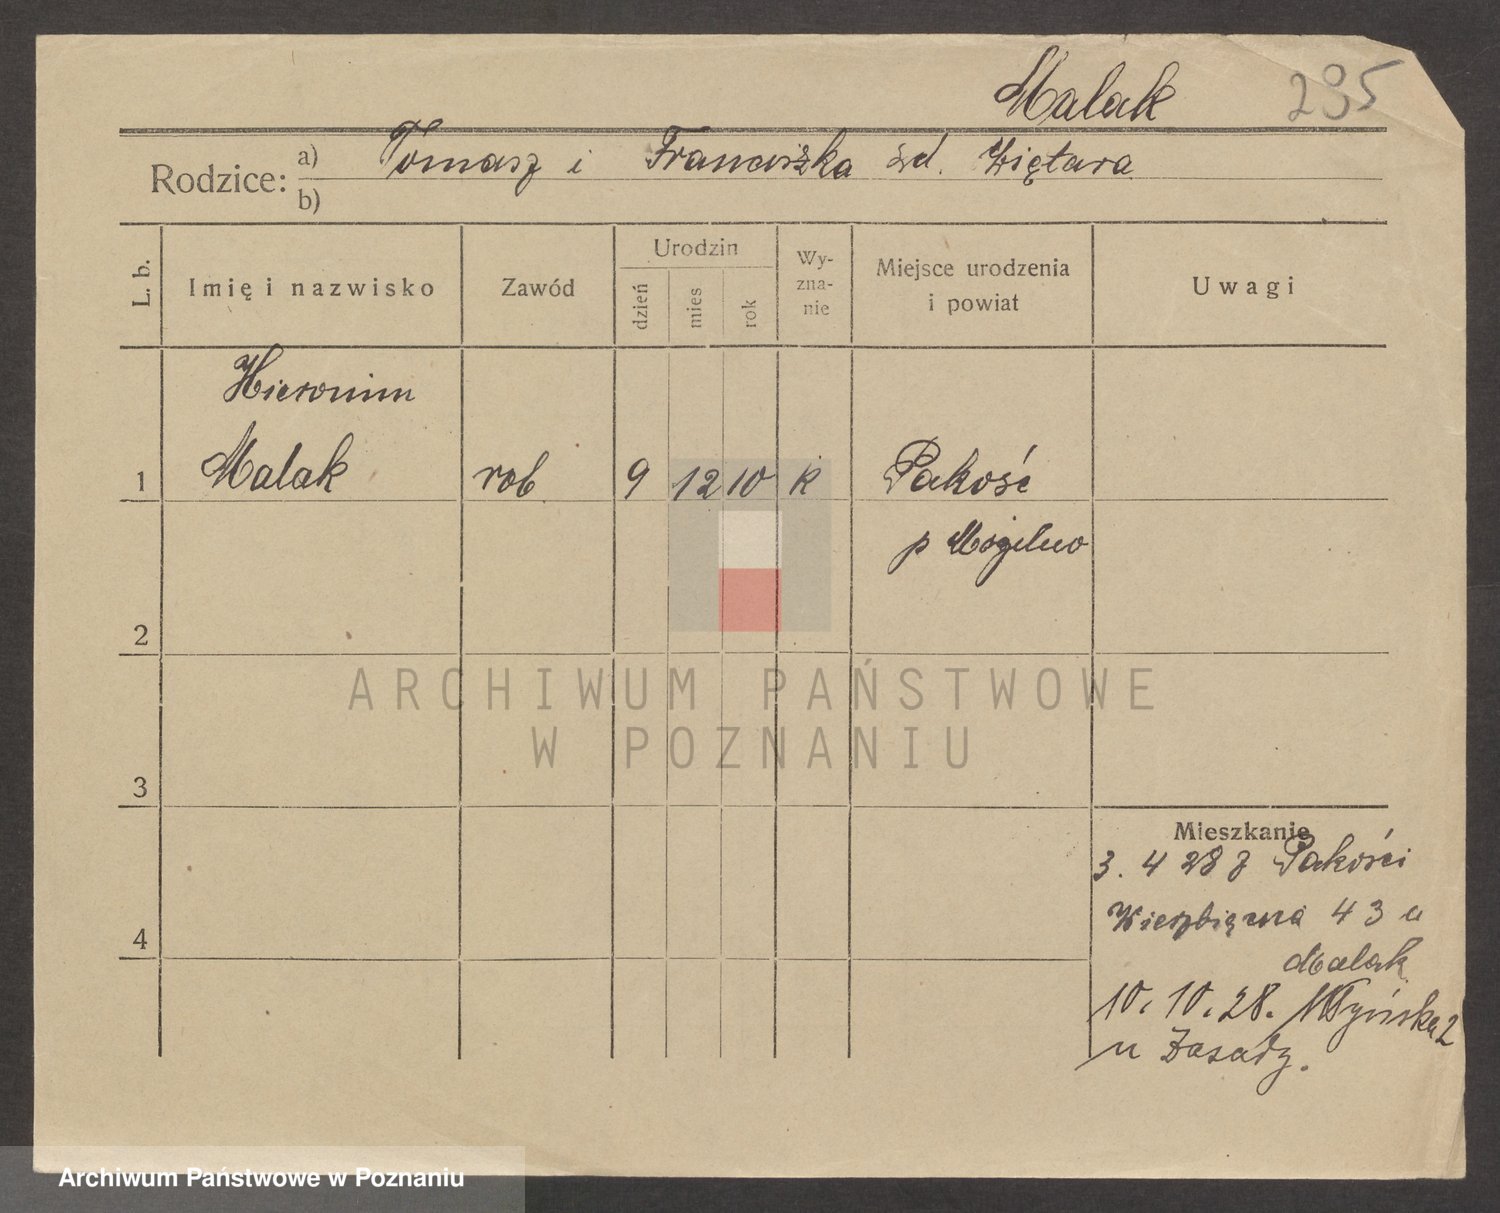 Malak 295
Rodzice: a) Tomasz i Franciszka żd. Ziętara
b)
L. b. Imię i nazwisko Zawód Urodzin dzień mies rok Wy-zna-nie Miejsce urodzenia i powiat Uwagi
Hieronim
1 Malak rob 9 12 10 k Pakość
p Mogilno
2
3
Mieszkanie
3. 4 28 z Pakości
Wierzbięcice 43 u
4 Malak
10. 10. 28. Młyńska 2
u Zasady.
ARCHIWUM PAŃSTWOWE
W POZNANIU
Archiwum Państwowe w Poznaniu